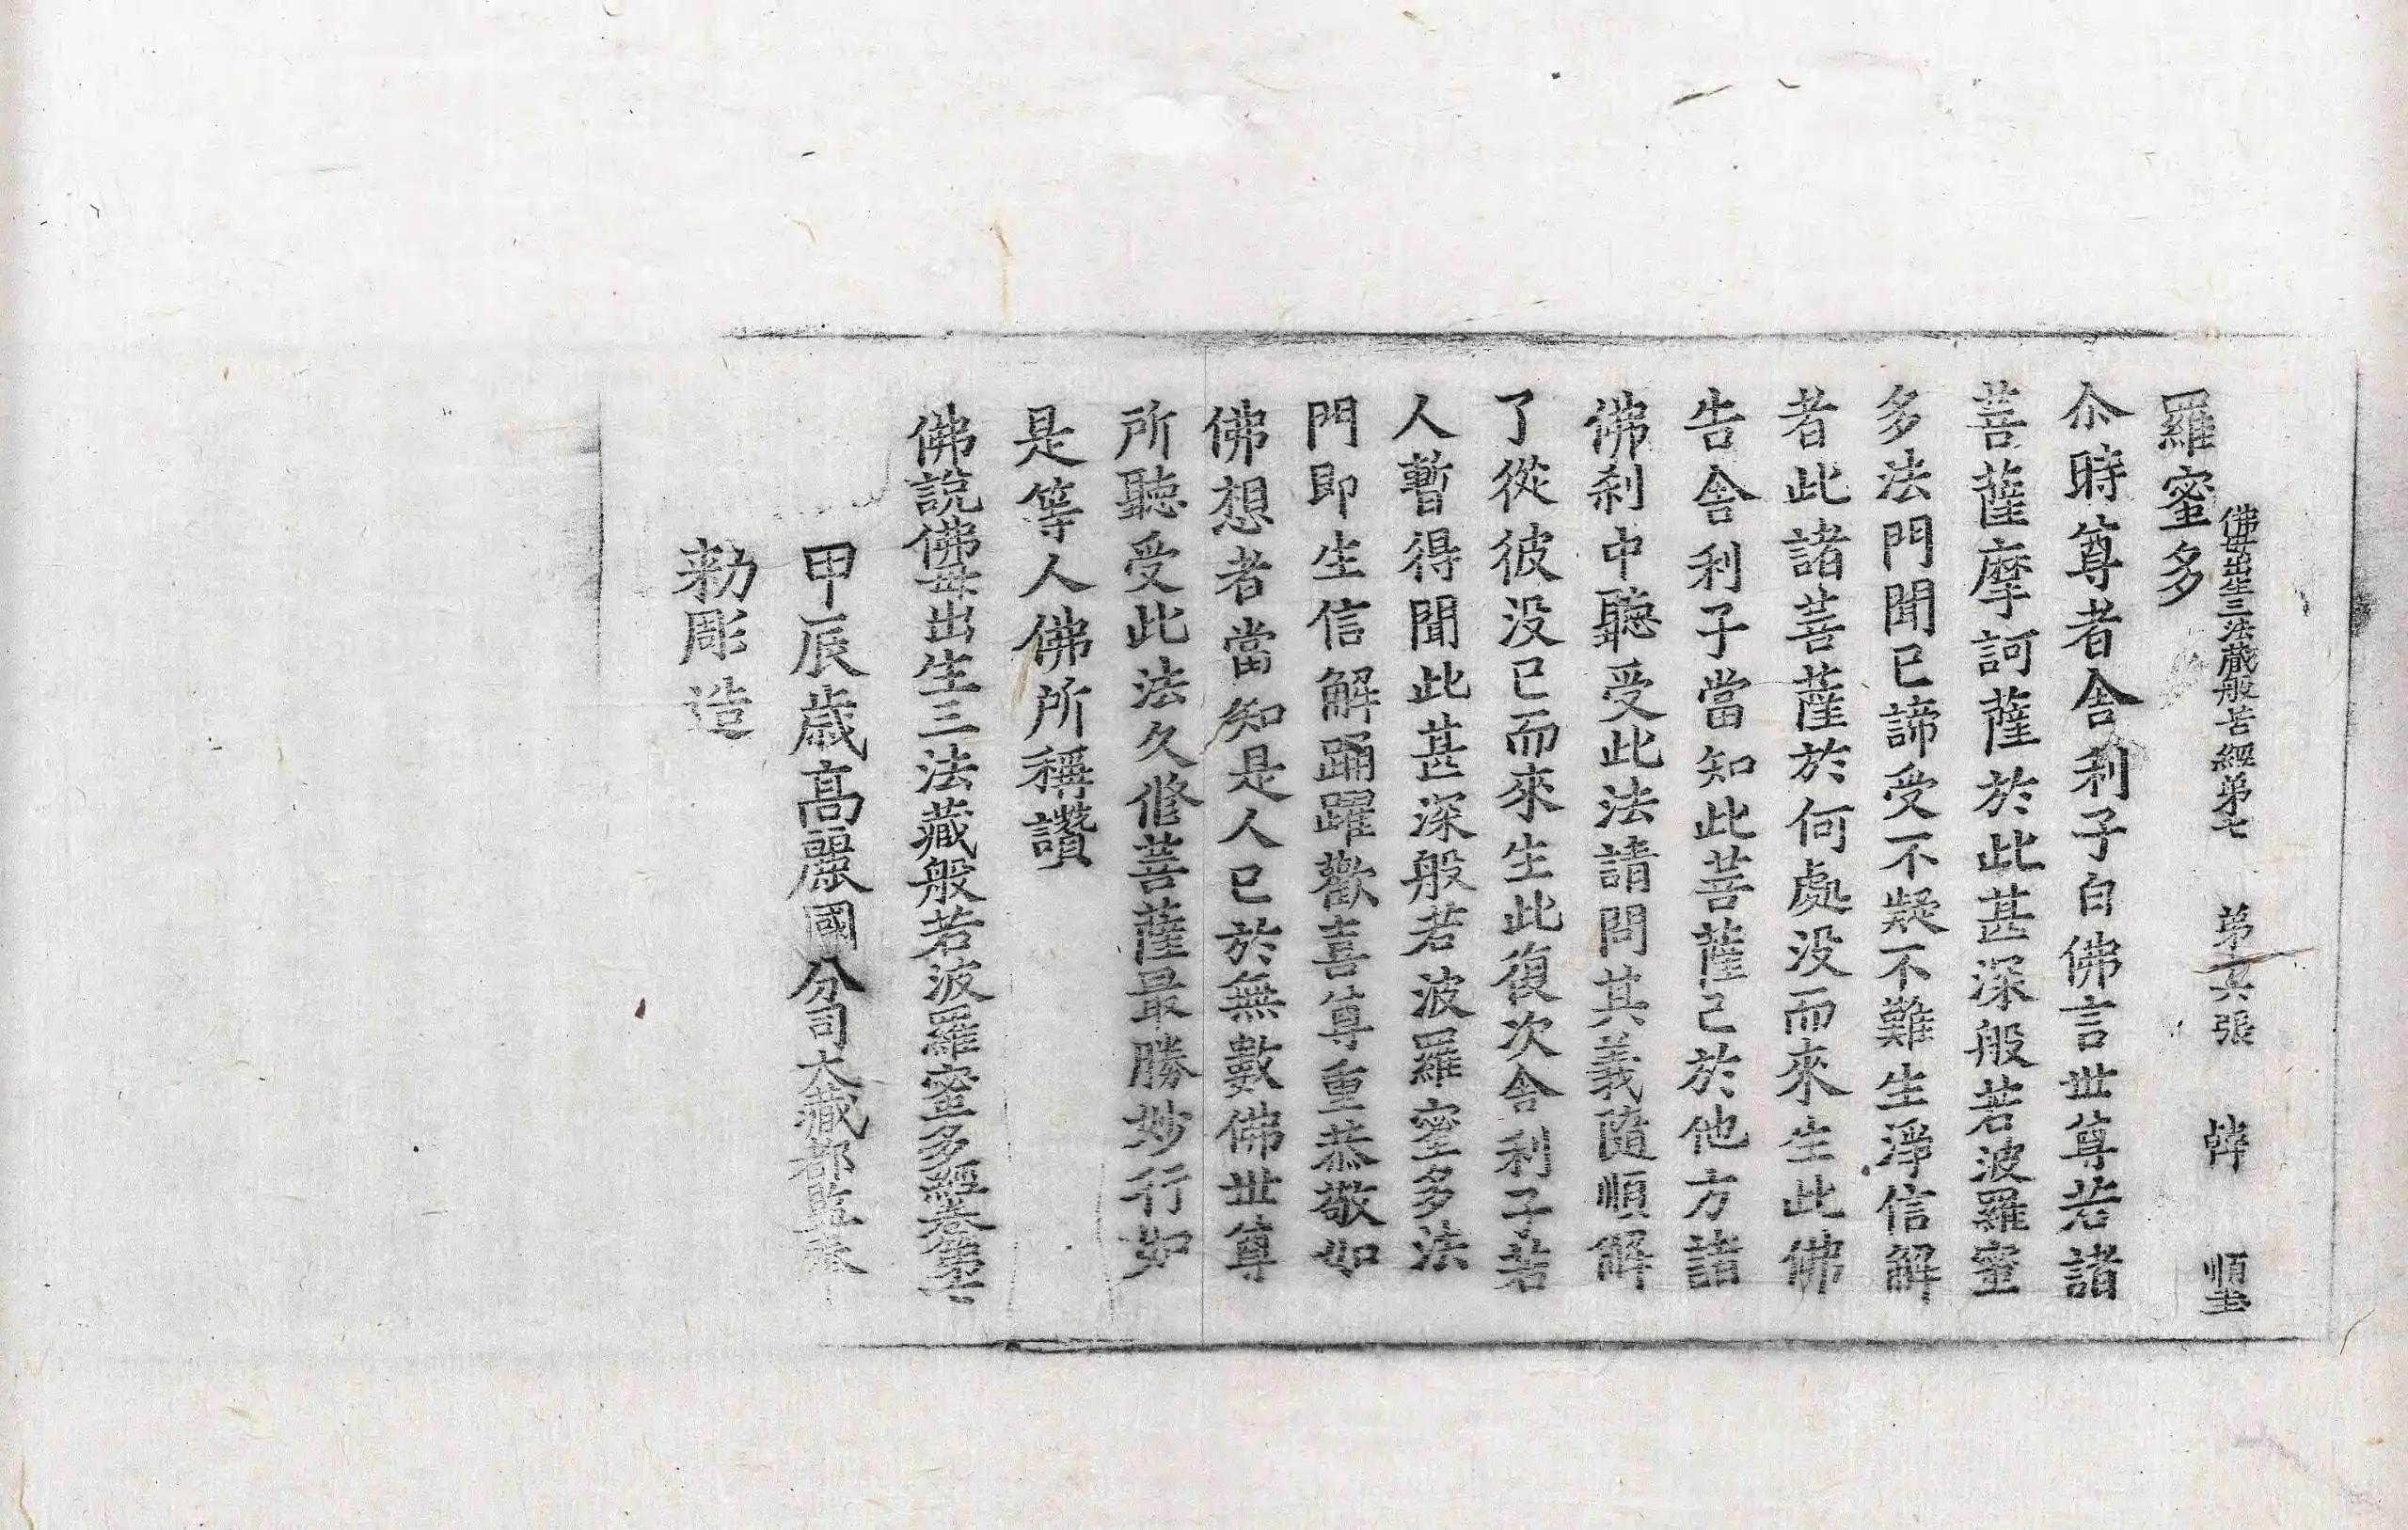 佛母出生三法藏般若經第七 第 張 韡 順玉
羅蜜多
尒時尊者舍利子白佛言世尊若諸
菩薩摩訶薩於此甚深般若波羅蜜
多法門聞已諦受不疑不難生淨信解
者此諸菩薩於何處没而來生此佛
告舍利子當知此菩薩已於他方諸
佛刹中聽受此法請問其義隨順解
了從彼没已而來生此復次舍利子若
人暫得聞此甚深般若波羅蜜多法
門即生信解踊躍歡喜尊重恭敬如
佛想者當知是人已於無數佛世尊
所聽受此法久修菩薩最勝妙行如
是等人佛所稱讚
佛說佛母出生三法藏般若波羅蜜多經卷第七
甲辰歲高麗國分司大藏都監奉
勑彫造